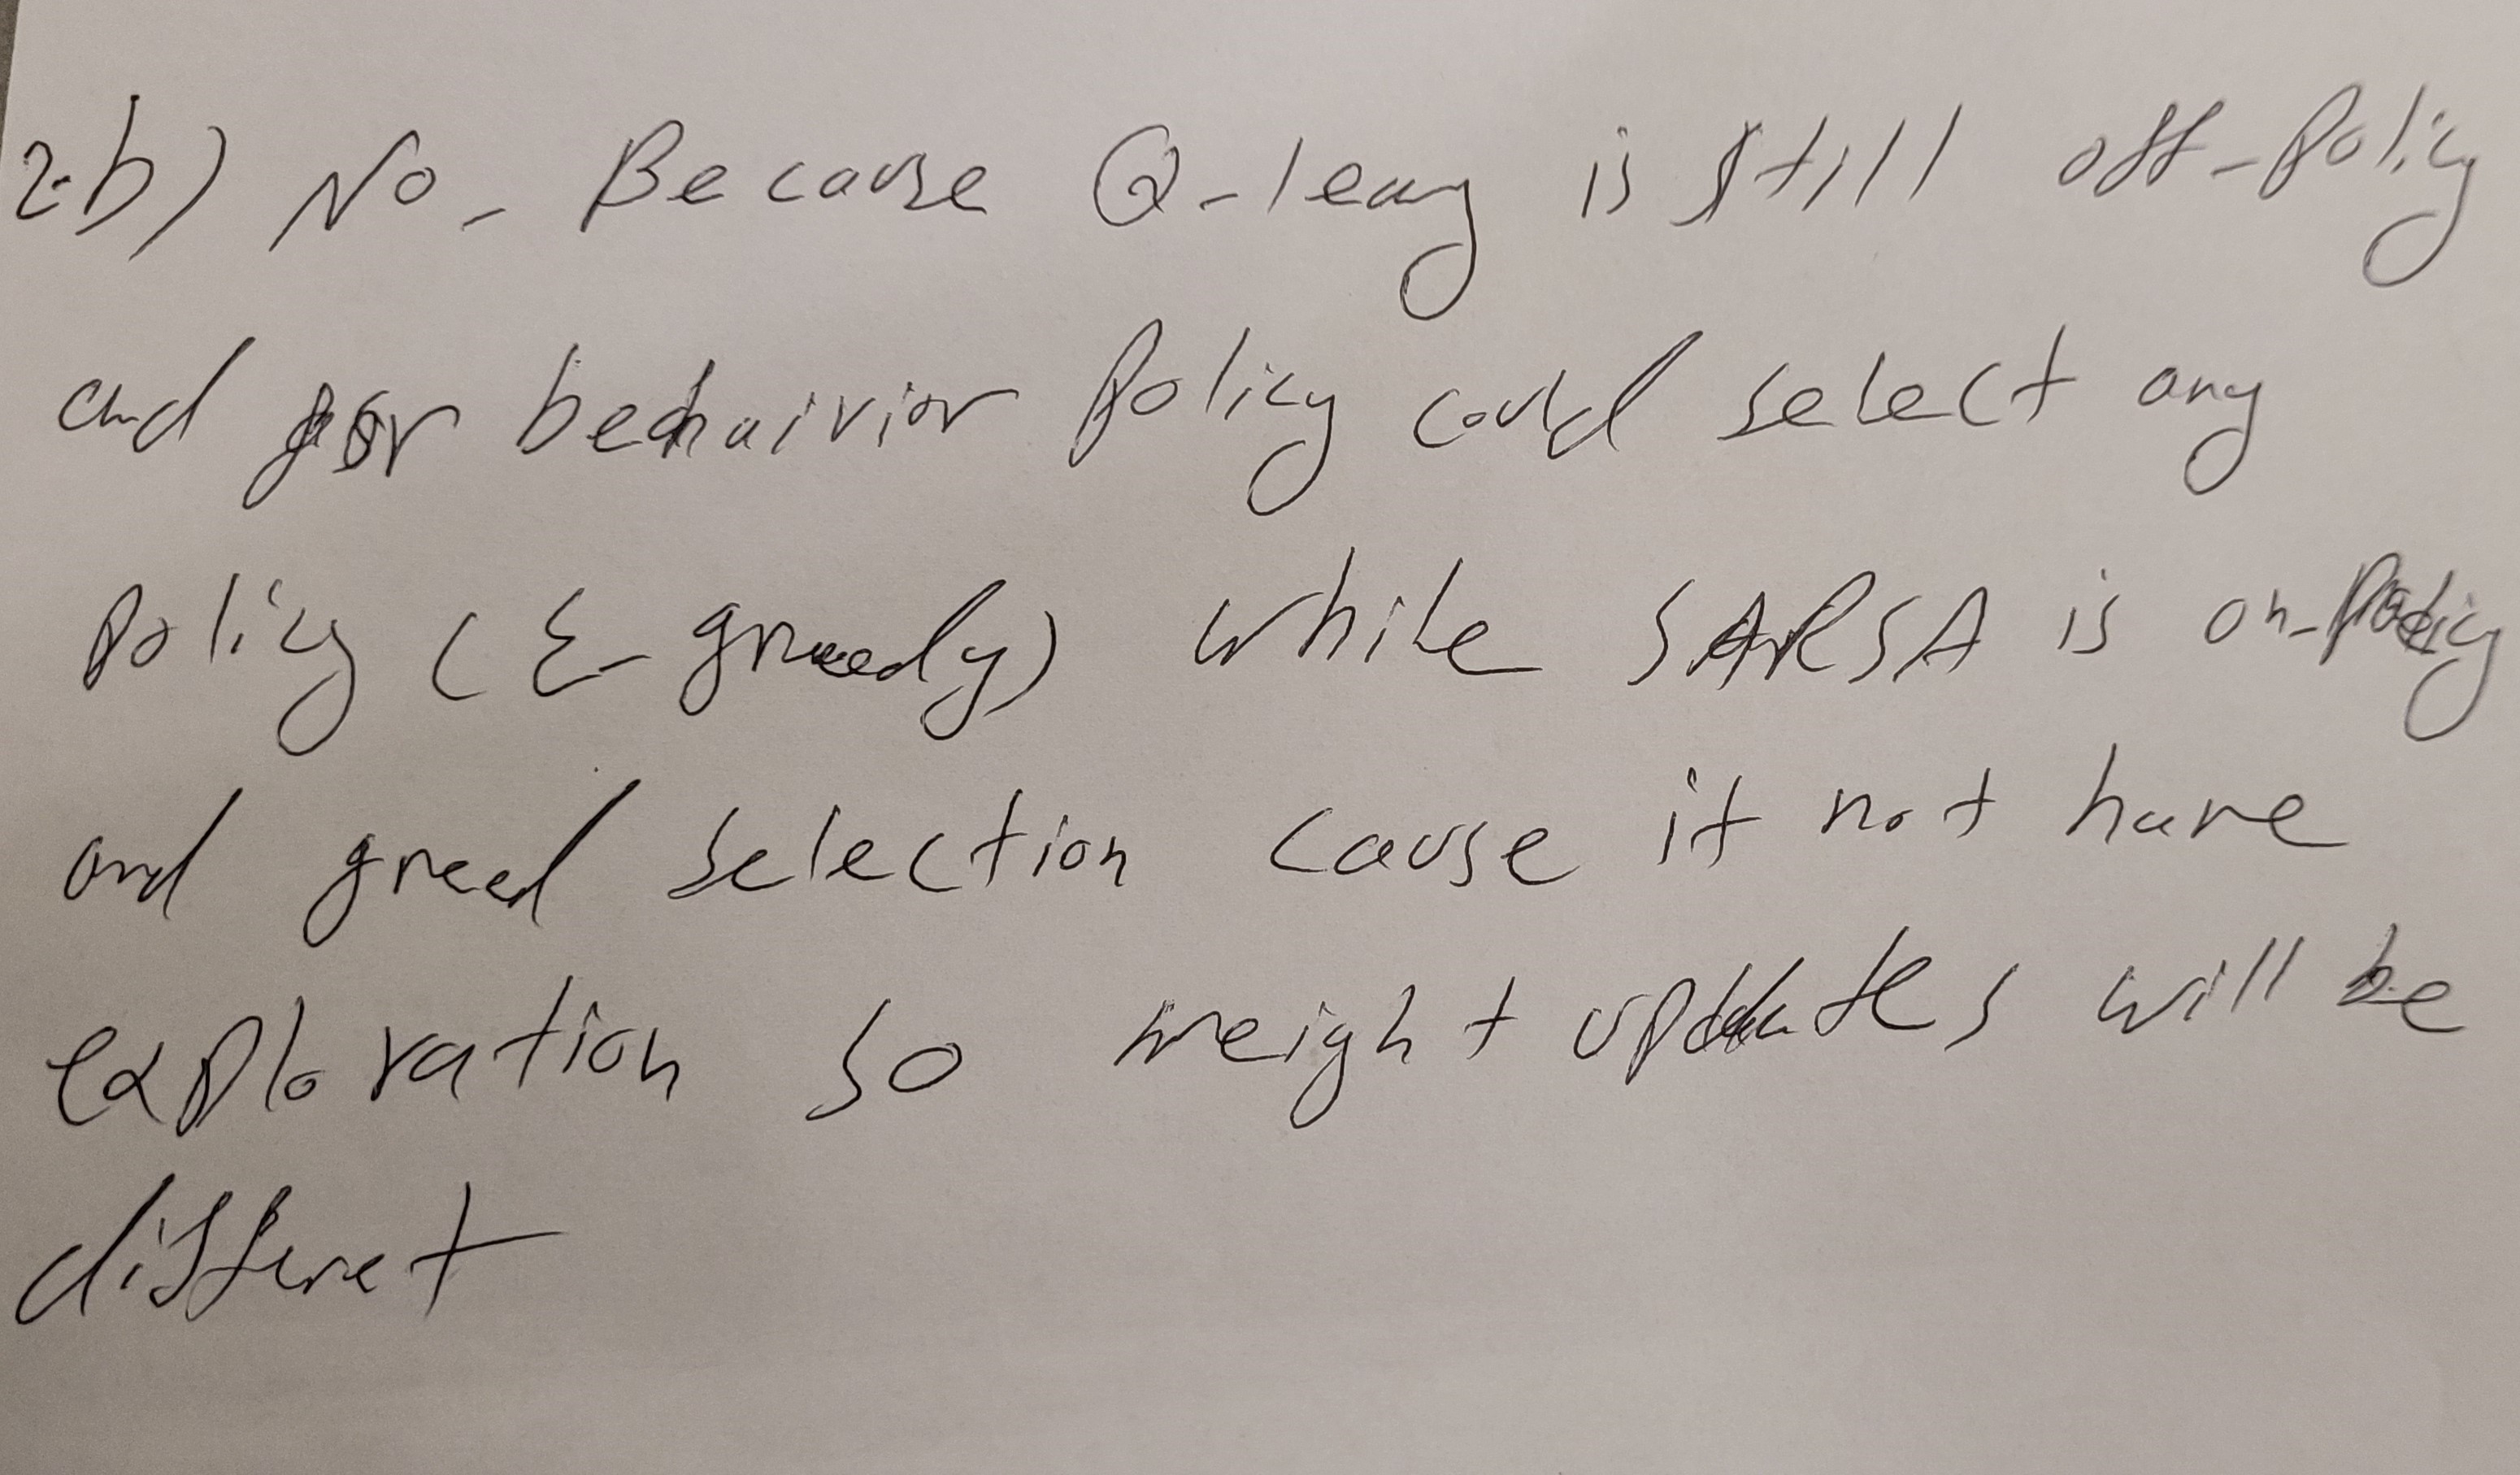 2.b) No. Because Q-learg is still off-policy
and for behaivior policy could select any
policy (ε-greedy) while SARSA is on-policy
and greed selection cause it not have
exploration so weight updates will be
differet